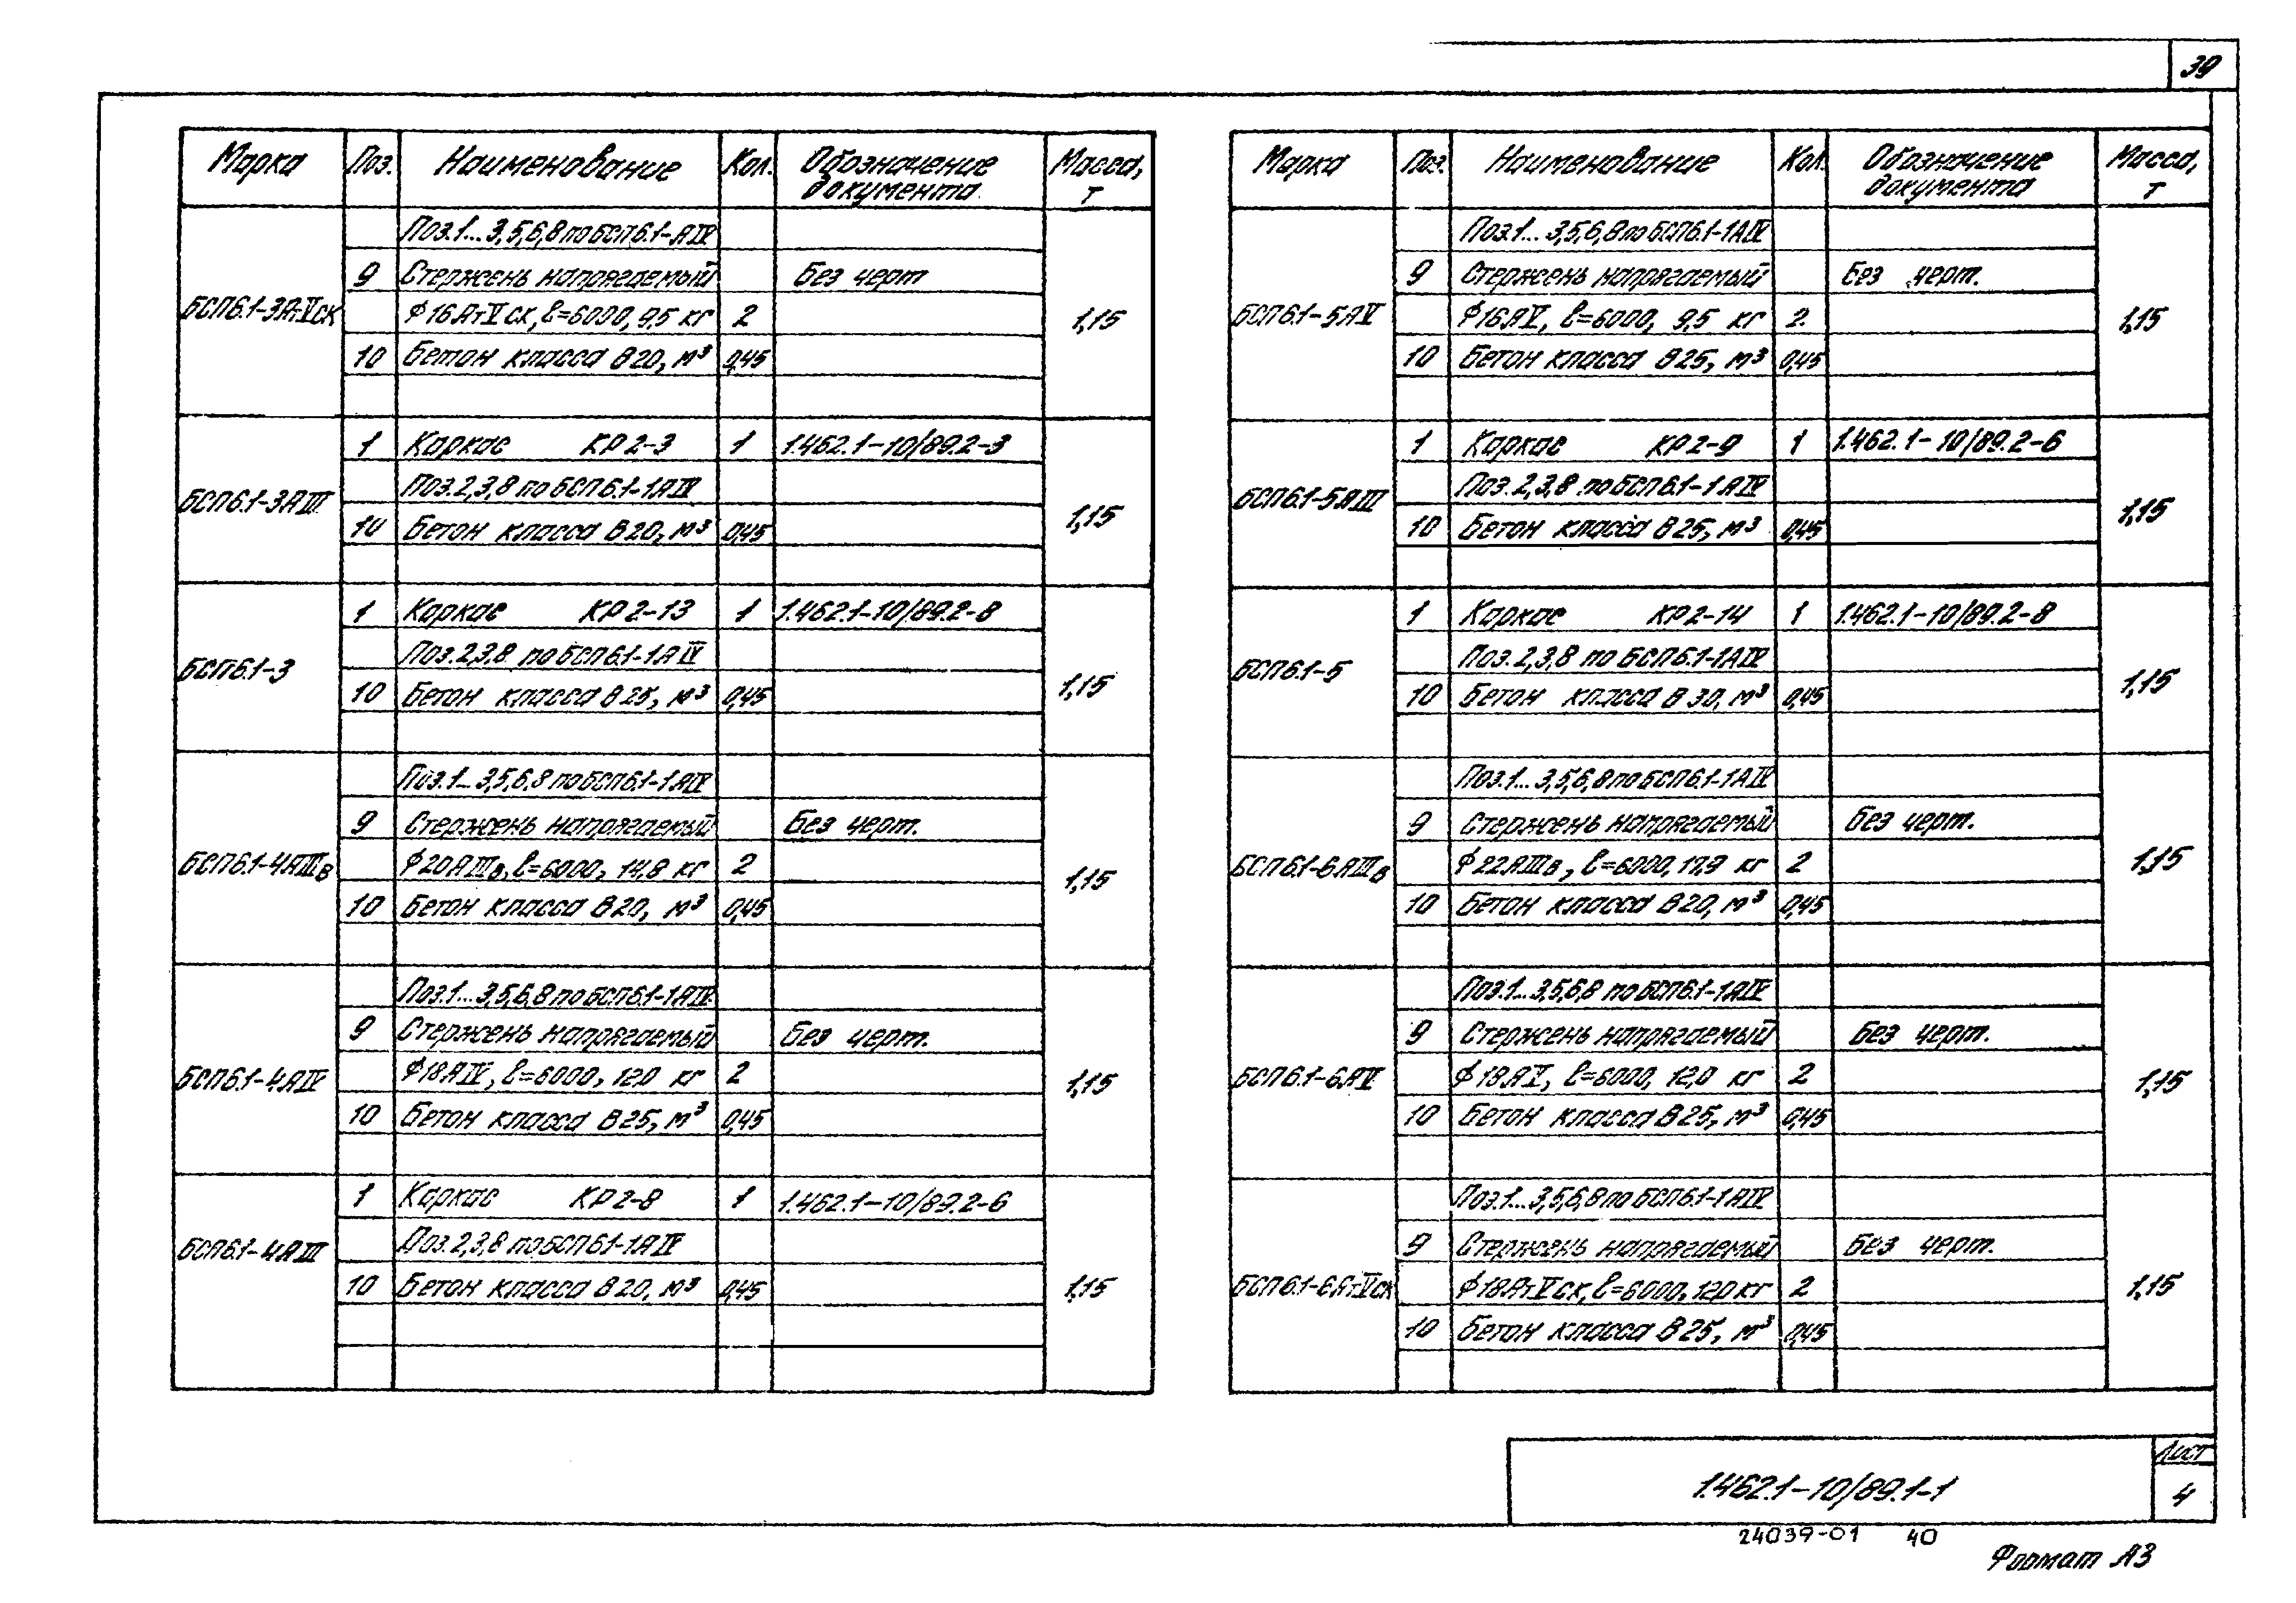 39
Марка Поз. Наименование Кол. Обозначение документа Масса, т
Поз.1... 3,5,6,8 по БСП6.1-АIV
9 Стержень напрягаемый Без черт
БСП6.1-3АтVск ϕ16АтVск, ℓ=6000, 9,5 кг 2 1,15
10 Бетон класса В20, м³ 0,45
1 Каркас КР2-3 1 1.462.1-10/89.2-3
БСП6.1-3АIII Поз.2,3,8 по БСП6.1-1АIV 1,15
10 Бетон класса В20, м³ 0,45
1 Каркас КР2-13 1 1.462.1-10/89.2-8
БСП6.1-3 Поз.2,3,8 по БСП6.1-1АIV 1,15
10 Бетон класса В25, м³ 0,45
Поз.1... 3,5,6,8 по БСП6.1-1АIV
9 Стержень напрягаемый Без черт.
БСП6.1-4АIIIв ϕ20АIIIв, ℓ=6000, 14,8 кг 2 1,15
10 Бетон класса В20, м³ 0,45
Поз.1... 3,5,6,8 по БСП6.1-1АIV
9 Стержень напрягаемый Без черт.
БСП6.1-4АIV ϕ18АIV, ℓ=6000, 12,0 кг 2 1,15
10 Бетон класса В25, м³ 0,45
1 Каркас КР2-8 1 1.462.1-10/89.2-6
БСП6.1-4АIII Поз.2,3,8 по БСП6.1-1АIV 1,15
10 Бетон класса В20, м³ 0,45
Марка Поз. Наименование Кол. Обозначение документа Масса, т
Поз.1... 3,5,6,8 по БСП6.1-1АIV
9 Стержень напрягаемый Без черт.
БСП6.1-5АV ϕ16АV, ℓ=6000, 9,5 кг 2. 1,15
10 Бетон класса В25, м³ 0,45
1 Каркас КР2-9 1 1.462.1-10/89.2-6
БСП6.1-5АIII Поз.2,3,8 по БСП6.1-1АIV 1,15
10 Бетон класса В25, м³ 0,45
1 Каркас КР2-14 1 1.462.1-10/89.2-8
БСП6.1-5 Поз.2,3,8 по БСП6.1-1АIV 1,15
10 Бетон класса В30, м³ 0,45
Поз.1... 3,5,6,8 по БСП6.1-1АIV
9 Стержень напрягаемый Без черт.
БСП6.1-6АIIIв ϕ22АIIIв, ℓ=6000, 17,9 кг 2 1,15
10 Бетон класса В20, м³ 0,45
Поз.1... 3,5,6,8 по БСП6.1-1АIV
9 Стержень напрягаемый Без черт.
БСП6.1-6АV ϕ18АV, ℓ=6000, 12,0 кг 2 1,15
10 Бетон класса В25, м³ 0,45
Поз.1... 3,5,6,8 по БСП6.1-1АIV
9 Стержень напрягаемый Без черт.
БСП6.1-6АтVск ϕ18АтVск, ℓ=6000, 12,0 кг 2 1,15
10 Бетон класса В25, м³ 0,45
1.462.1-10/89.1-1 Лист 4
24039-01 40
Формат А3